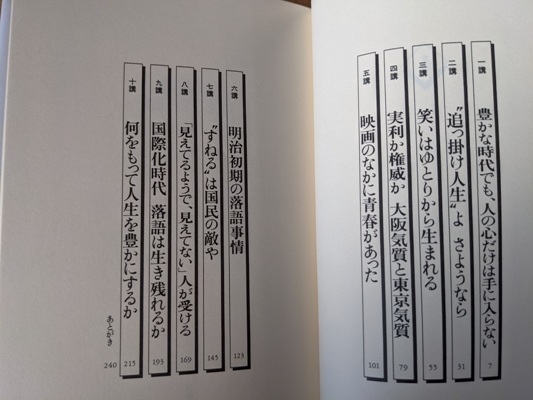 一講 豊かな時代でも、人の心だけは手に入らない 7
二講 “追っ掛け人生”よ さようなら 31
三講 笑いはゆとりから生まれる 55
四講 実利か権威か 大阪気質と東京気質 79
五講 映画のなかに青春があった 101
六講 明治初期の落語事情 123
七講 “すねる”は国民の敵や 145
八講 「見えてるようで、見えてない」人が受ける 169
九講 国際化時代 落語は生き残れるか 193
十講 何をもって人生を豊かにするか 215
あとがき 240